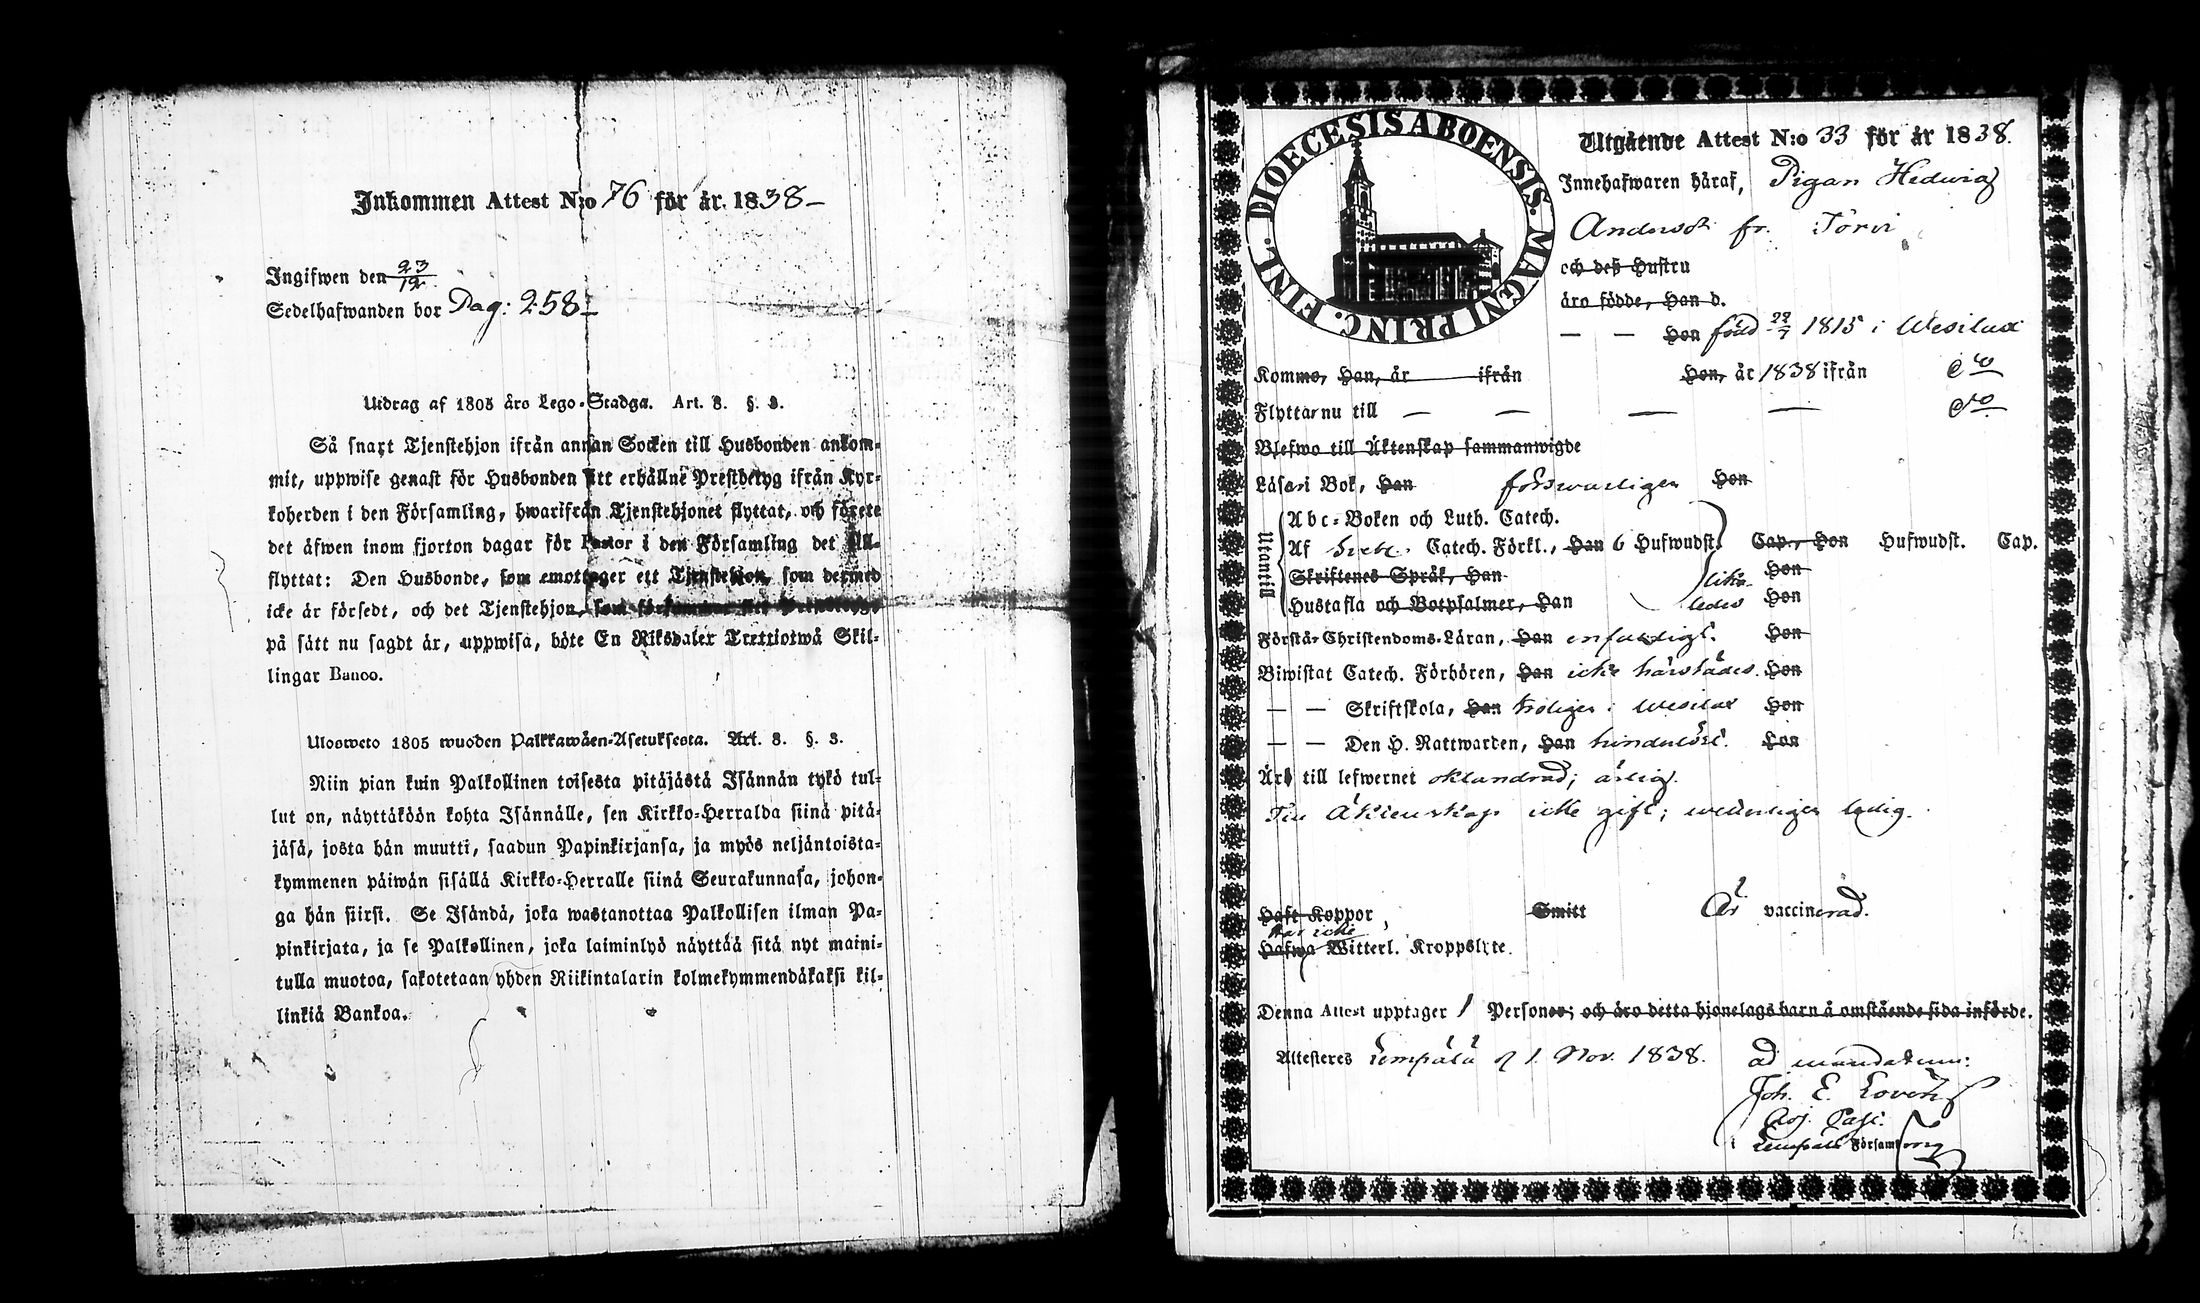 Inkommen Attest N:o 76 för år 1838 –
Ingifwen den 23/12.
Sedelhafwanden bor Pag: 258 –
Utdrag af 1805 års Lego-Stadga. Art. 8. §. 3.
Så snart Tjenstehjon ifrån annan Socken till Husbonden ankom-
mit, uppwise genast för Husbonden sitt erhållne Prestbetyg ifrån Kyr-
koherden i den Församling, hwarifrån Tjenstehjonet flyttat, och förete
det äfwen inom fjorton dagar för Pastor i den Församling det till-
flyttat: Den Husbonde, som emottager ett Tjenstehjon, som dermed
icke är försedt, och det Tjenstehjon, som försummar
på sätt nu sagdt är, uppwisa, böte En Riksdaler Trettiotwå Skil-
lingar Banco.
Ulosweto 1805 wuoden Palkkawäen-Asetuksesta. Art. 8. §. 3.
Niin pian kuin Palkollinen toisesta pitäjästä Isännän tykö tul-
lut on, näyttäköön kohta Isännälle, sen Kirkko-Herralda siinä pitä-
jäsä, josta hän muutti, saadun Papinkirjansa, ja myös neljäntoista-
kymmenen päiwän sisällä Kirkko-Herralle siinä Seurakunnasa, johon-
ga hän siirsi. Se Isändä, joka wastanottaa Palkollisen ilman Pa-
pinkirjata, ja se Palkollinen, joka laiminlyö näyttää sitä nyt maini-
tulla muotoa, sakotetaan yhden Riikintalarin kolmekymmendäkaksi kil-
linkiä Bankoa.
DIOECESIS ABOENSIS. MAGNI PRINC. FINL.
Utgående Attest N:o 33 för år 1838.
Innehafwaren häraf, Pigan Hedwig
Andersdr fr. Torvi
och deß Hustru
äro födde, Han d.
— — Hon född 1815 i Wesilax
Kommo, Han, år ifrån Hon, år 1838 ifrån do
Flyttar nu till — — — — do
Blefwo till Äktenskap sammanwigde
Läser i Bok, Han förswarligen Hon
Utantill
Abc-Boken och Luth. Catech.
Af Sveb. Catech. Förkl., Han 6 Hufwudst. Cap., Hon Hufwudst. Cap.
Skriftenes Språk, Han lika- Hon
Hustafla och Botpsalmer, Han ledes Hon
Förstår Christendoms-Läran, Han enfaldigt. Hon
Biwistat Catech. Förhören, Han icke härstädes. Hon
— — Skriftskola, Han troligen i Wesilax Hon
— — Den H. Nattwarden, Han hinderlöst. Hon
Äro till lefwernet oklandrad; ärlig.
Till Äktenskap icke gift; wetterligen ledig.
Haft Koppor, Smitt Är vaccinerad.
Har icke
Hafwa Witterl. Kroppslyte.
Denna Attest upptager 1 Personer; och äro detta hjonelags barn å omstående sida införde.
Attesteres Lempälä d 1. Nov. 1838. ad mandatum:
Joh. E. Lovén
Adj. Past.
i Lempälä Församling